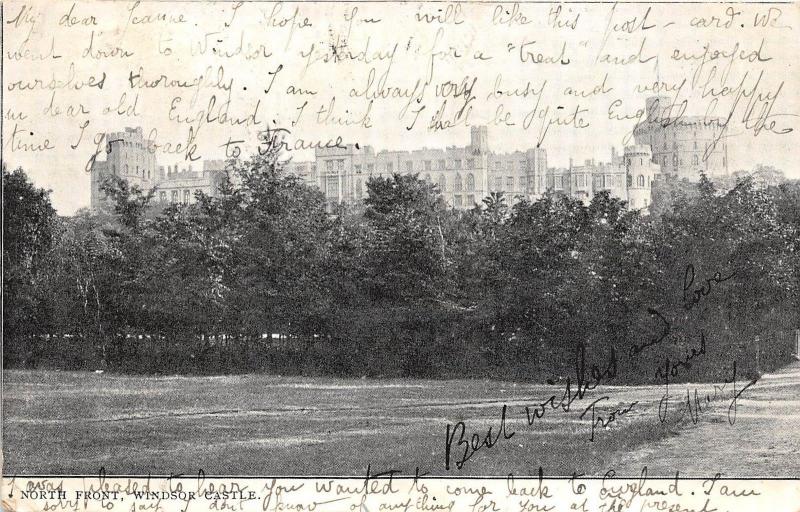 My dear Jeanne. I hope you will like this post-card. We
went down to Windsor yesterday "for a "treat" and enjoyed
ourselves thoroughly. I am always very busy and very happy
in dear old England. I think I shall be quite English by the
time I go back to France.
Best wishes and love
From yours
Mary
I was pleased to hear you wanted to come back to England. I am
NORTH FRONT, WINDSOR CASTLE.
sorry to say I don't know of anything for you at the present.